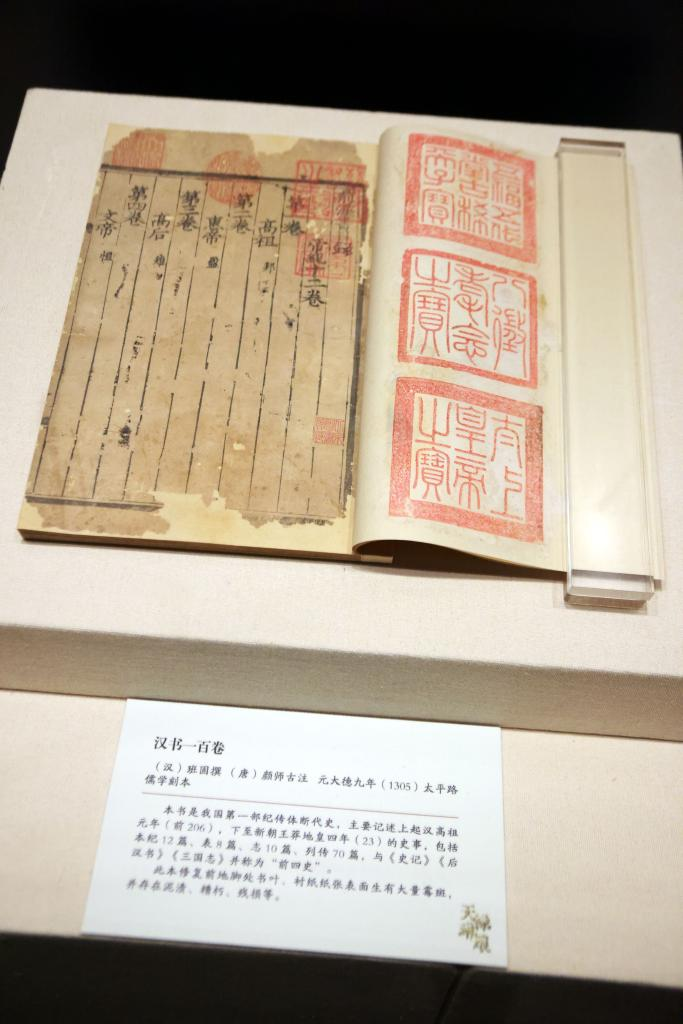 五福五代
堂古稀
天子寶
八徵
耄念
之寶
太上
皇帝
之寶
目錄
帝紀十二卷
第一卷
高祖 邦
第二卷
惠帝 盈
第三卷
高后 雉
第四卷
文帝 恒
汉书一百卷
（汉）班固撰 （唐）颜师古注 元大德九年（1305）太平路
儒学刻本
本书是我国第一部纪传体断代史，主要记述上起汉高祖
元年（前206），下至新朝王莽地皇四年（23）的史事，包括
本纪12篇、表8篇、志10篇、列传70篇，与《史记》《后
汉书》《三国志》并称为“前四史”。
此本修复前地脚处书叶、衬纸纸张表面生有大量霉斑，
并存在泥渍、糟朽、残损等。
天禄
琳琅